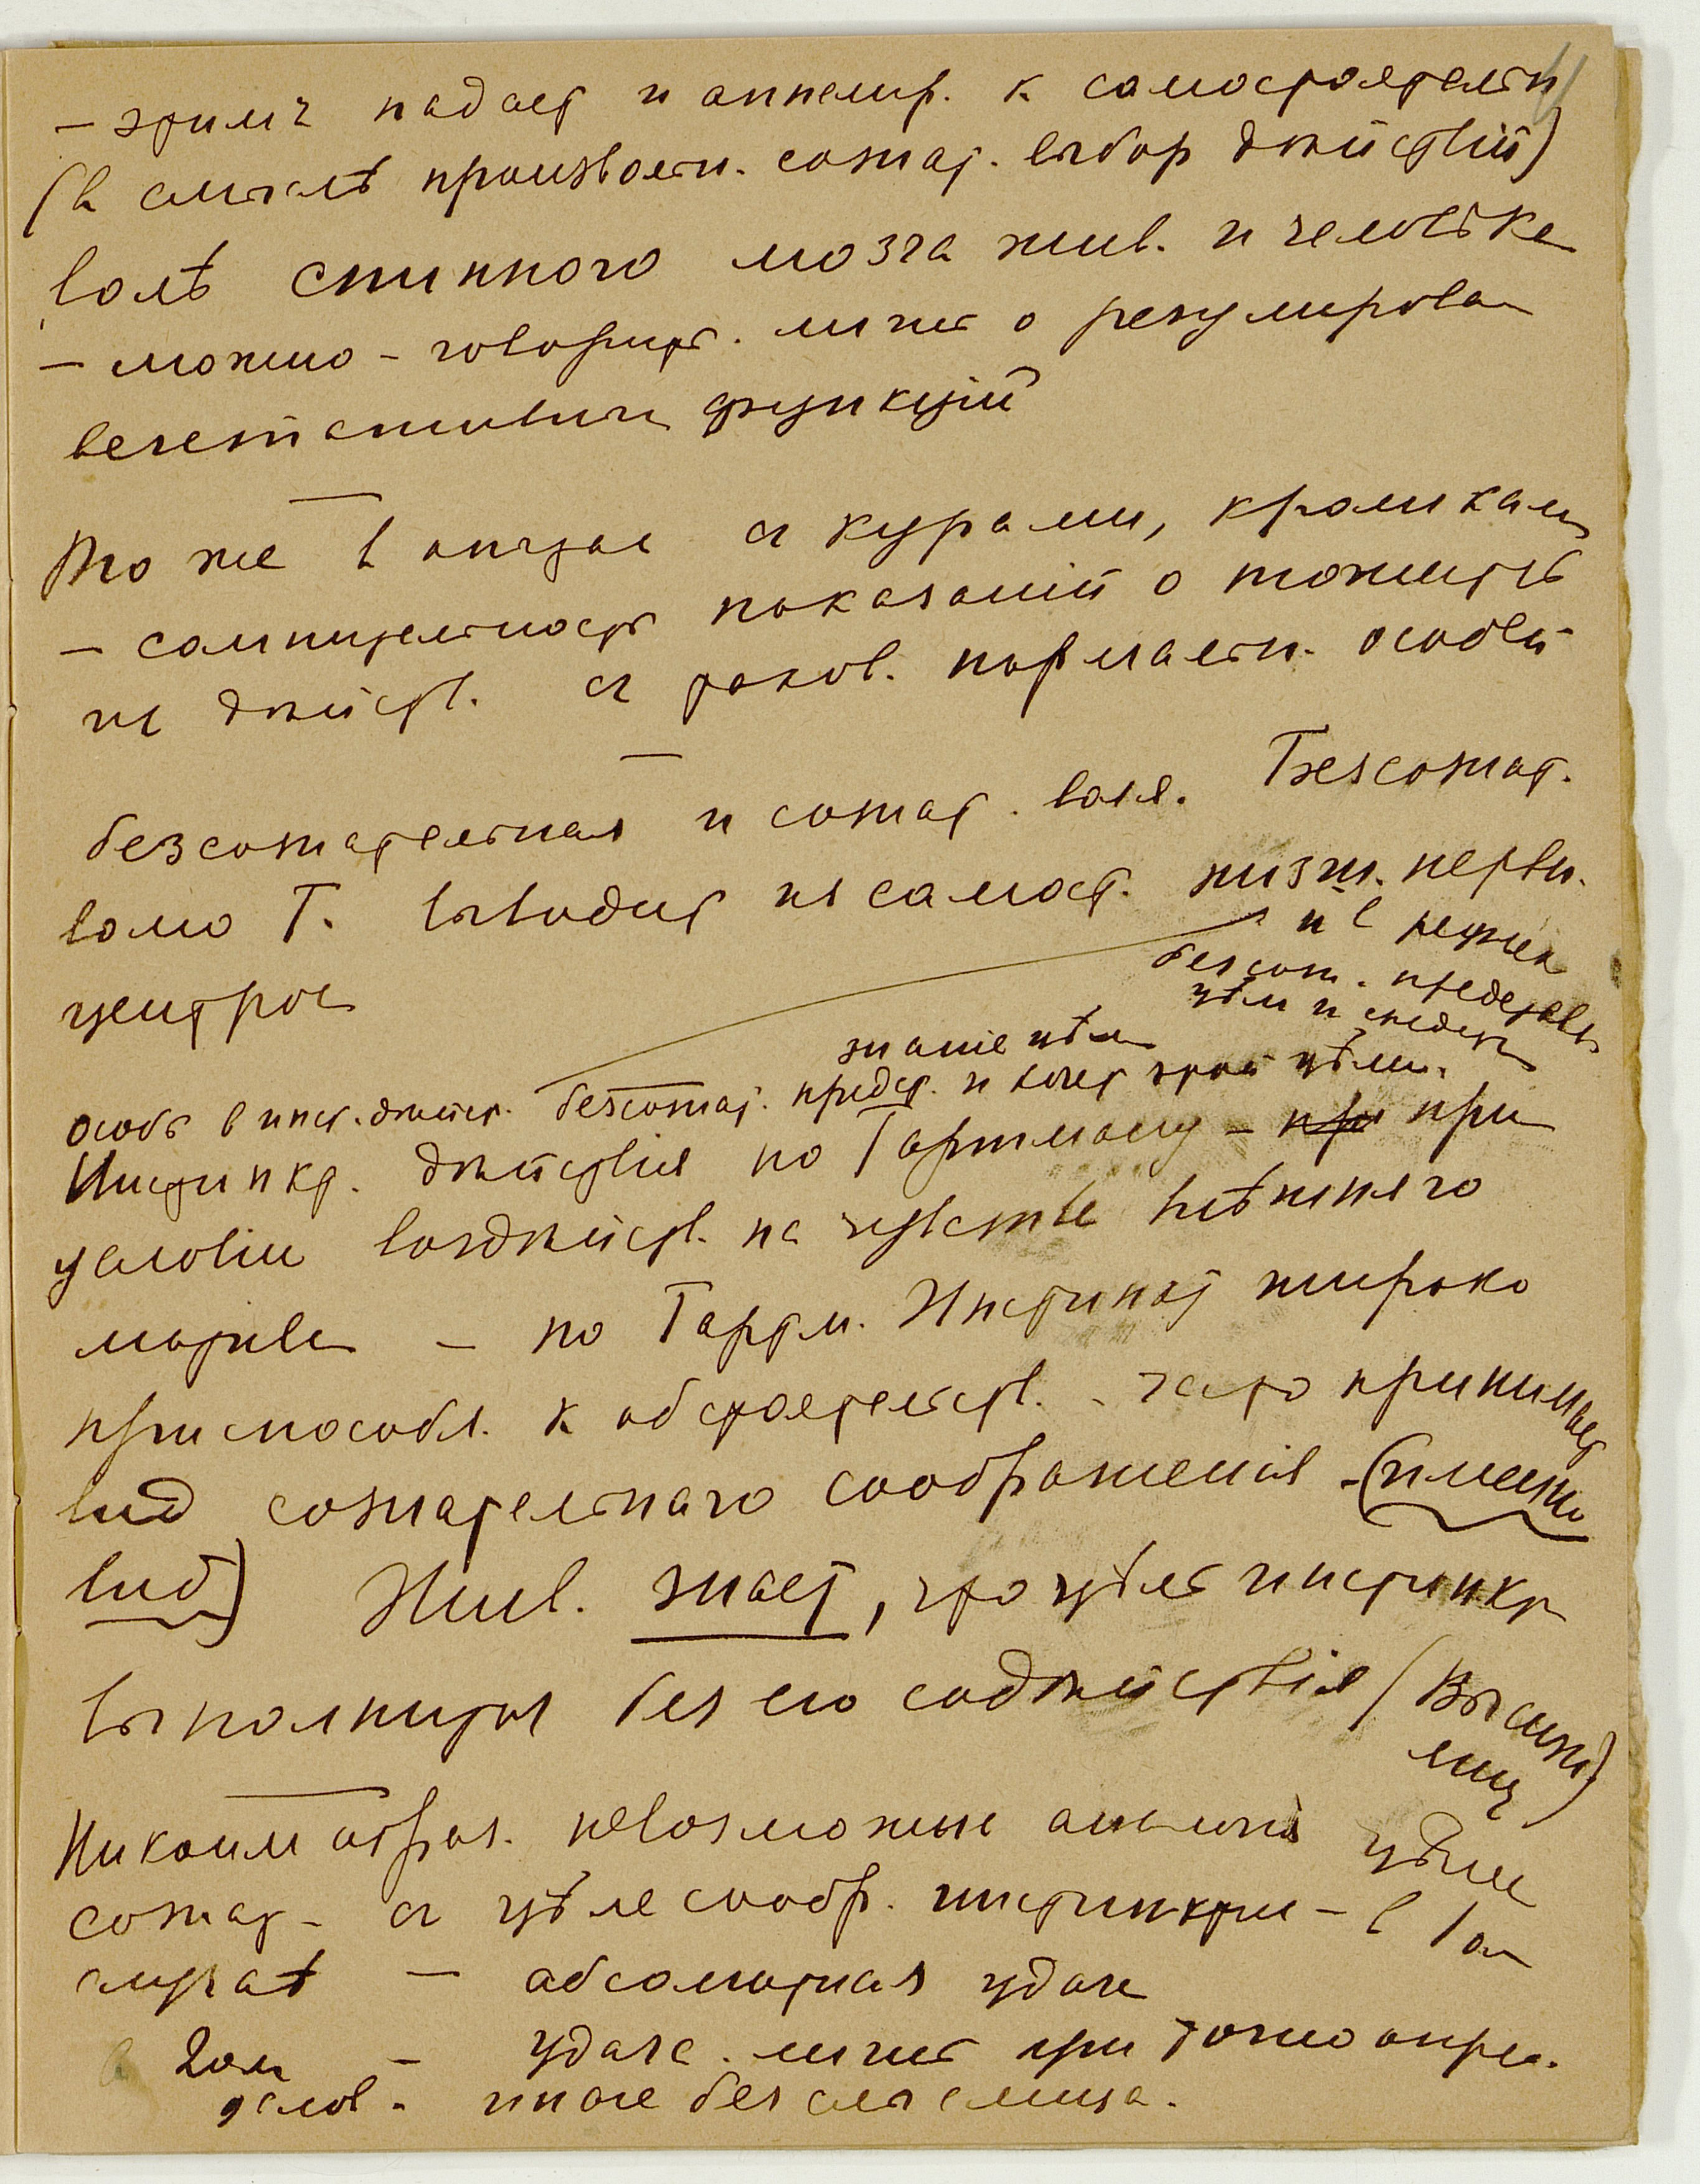 — этим падает и аппелир. к самостоятельн
(в смыслѣ произвольн. сознат. выбор дѣйствій)
волѣ спинного мозга жив. и человѣка
— можно – говорить. лишь о регулирова
вегетативных функцій
То же в опытах с курами, кроликами
— сомнительность показаній о тожествѣ
их дѣйств. с таков. нормальн. особей
безсознательная и сознат. воля. Безсознат.
волю Г. выводит из самост. низш. нервн.
и в рефлек
центров
безсозн. представл.
цѣли и средств
знаніе цѣли
особь в инст. дѣйств. безсознат. предст. и хочет этой цѣли.
Инстинкт. дѣйствія по Гартману – при при
условіи воздѣйств. на чувств внѣшняго
мотива — по Гартм. Инстинкт широко
приспособл. к обстоятельств. - часто принимает
вид сознательнаго соображенія – (именно
вид) Жив. знает, что цѣль инстинкт
выполнится без его содѣйствія (Высиж
яиц)
Никоим образ. невозможные аналогія цѣли
сознат – с цѣлесообр. инстинкт – в 1ом
случаѣ — абсолютная удача
в 2ом — удача. лишь при точно опред.
услов. – иначе безсмыслица.